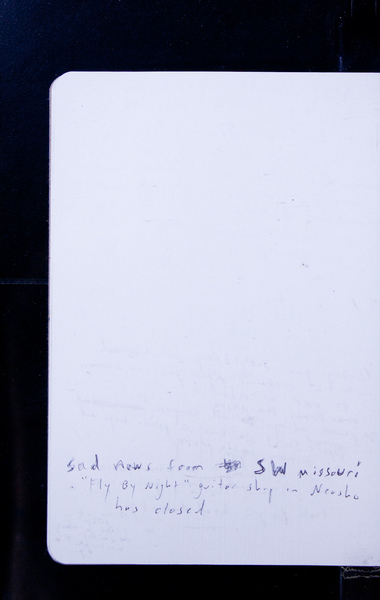 sad news from SW missouri
- "Fly By Night" guitar shop in Neosho
has closed